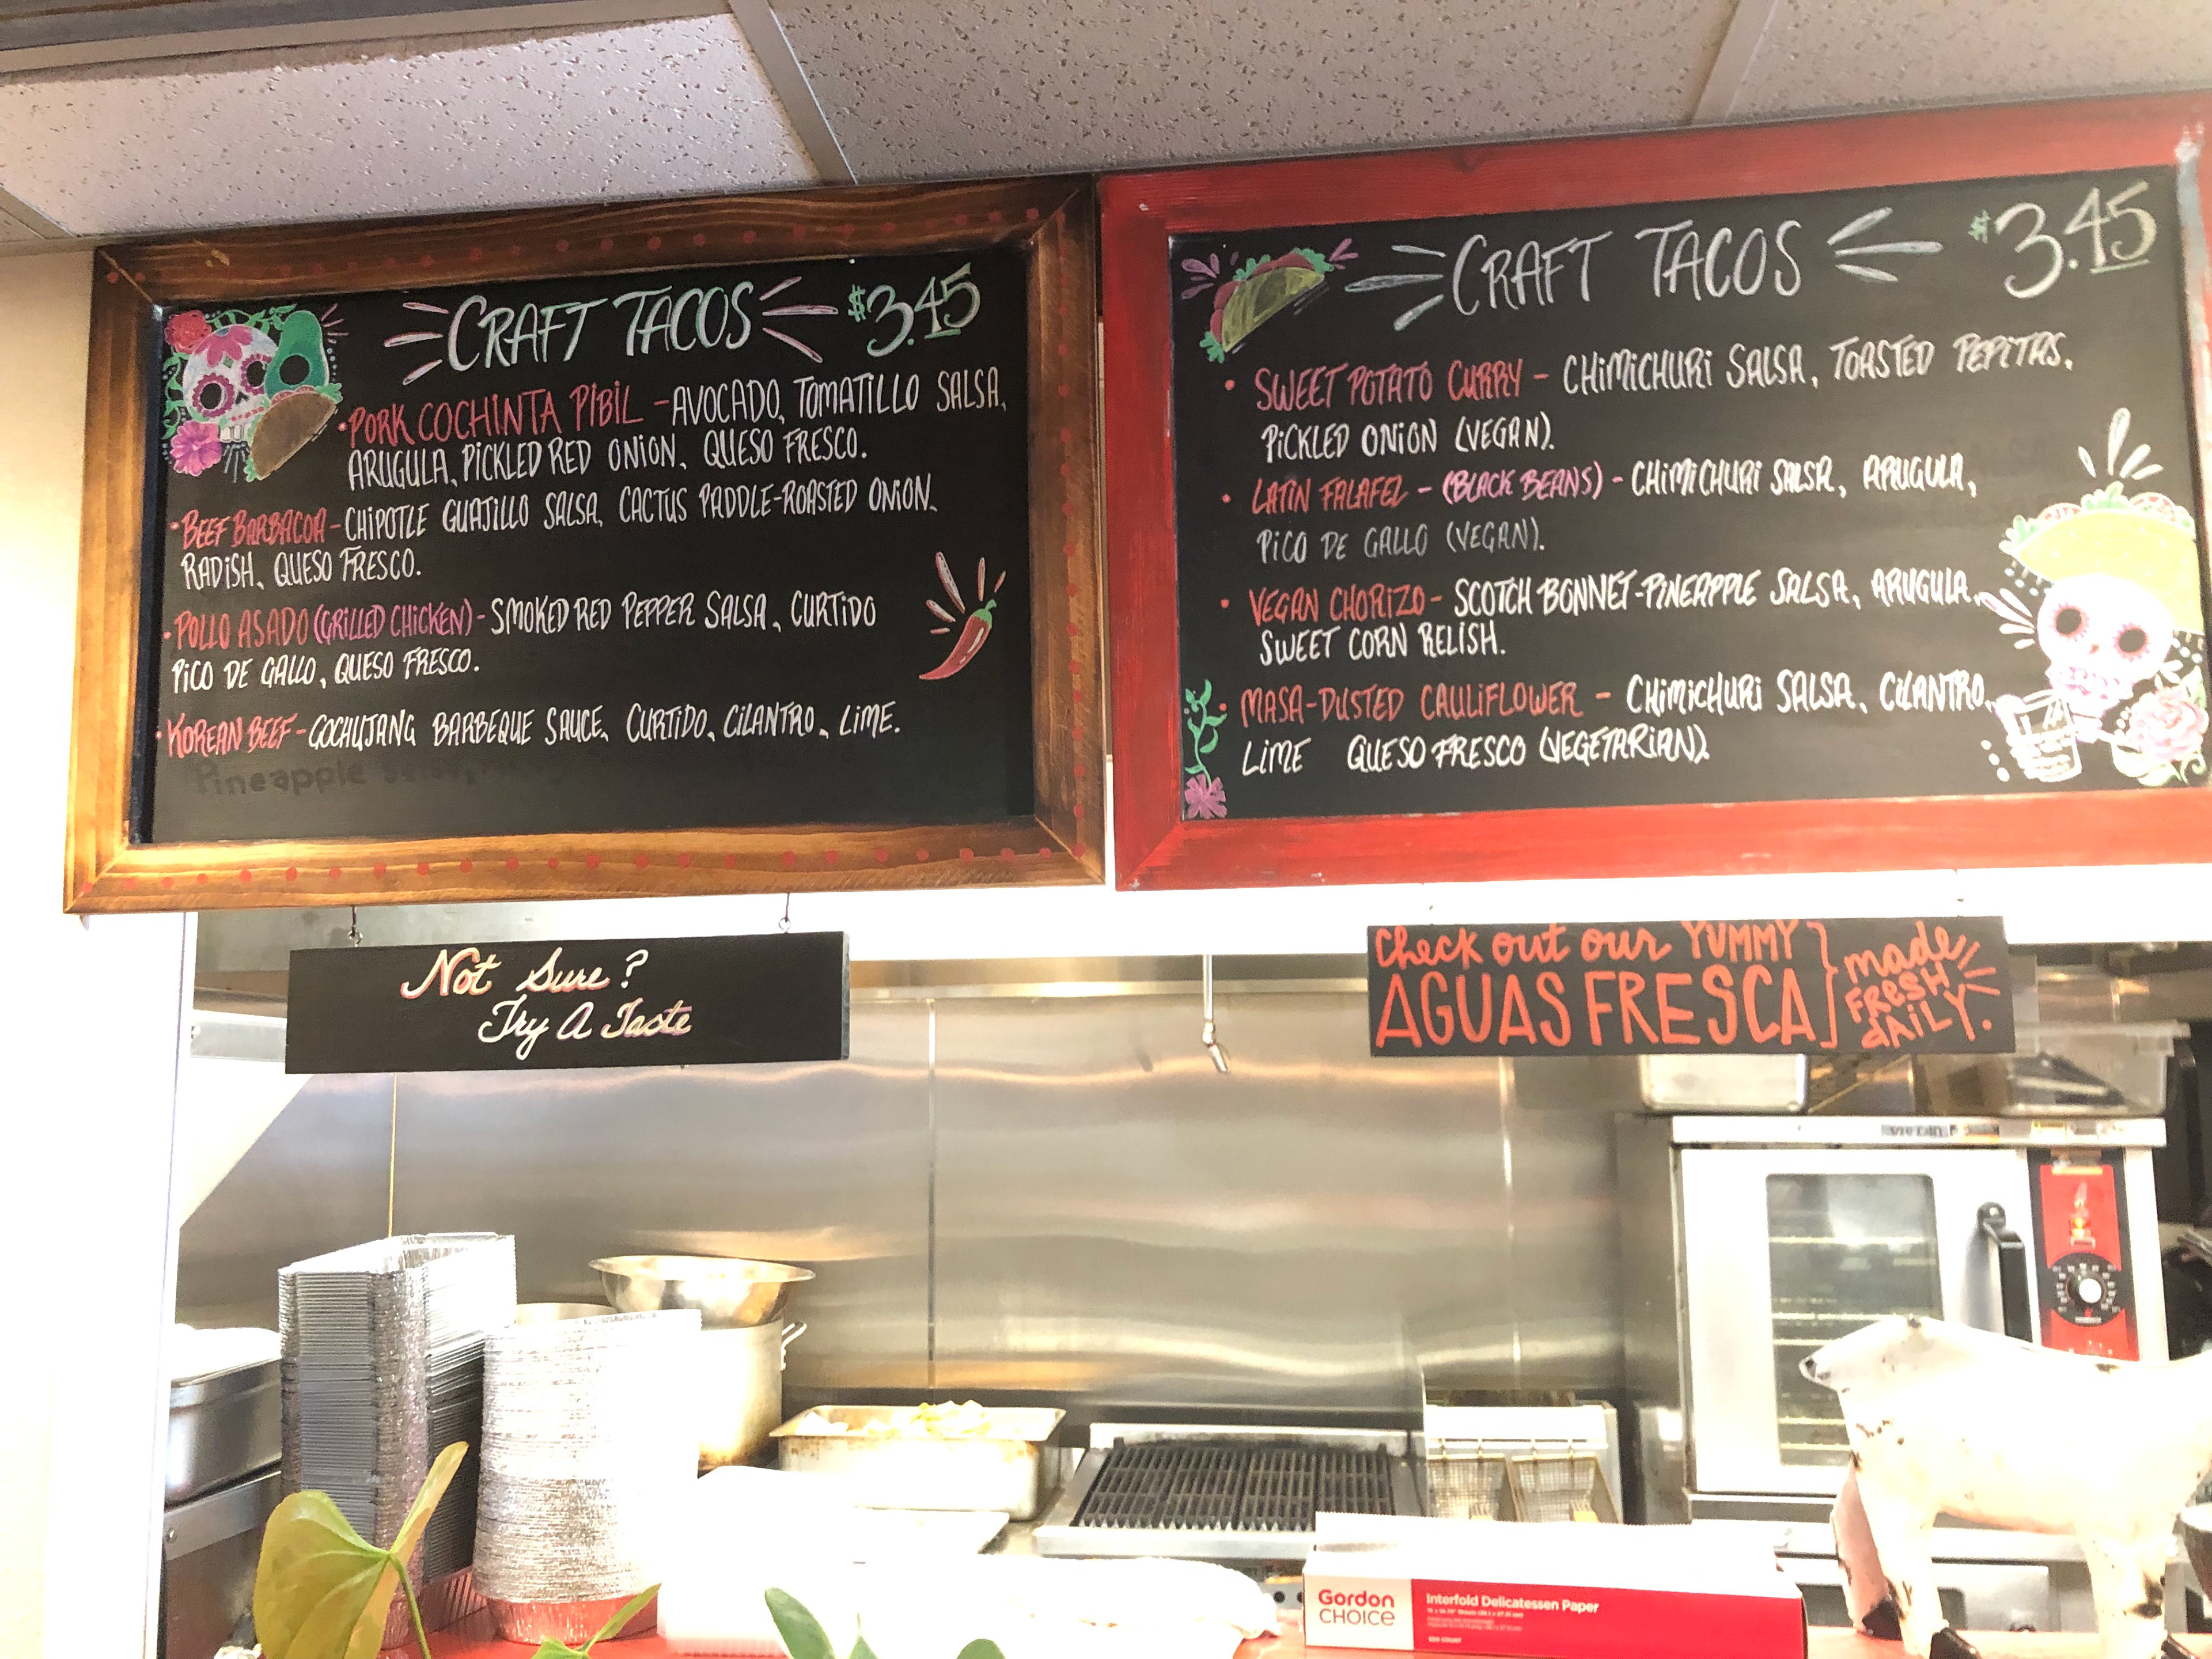 CRAFT TACOS $3.45
• PORK COCHINTA PIBIL - AVOCADO, TOMATILLO SALSA,
ARUGULA, PICKLED RED ONION, QUESO FRESCO.
• BEEF BARBACOA - CHIPOTLE GUAJILLO SALSA, CACTUS PADDLE-ROASTED ONION,
RADISH, QUESO FRESCO.
• POLLO ASADO (GRILLED CHICKEN) - SMOKED RED PEPPER SALSA, CURTIDO
PICO DE GALLO, QUESO FRESCO.
• KOREAN BEEF - GOCHUJANG BARBEQUE SAUCE, CURTIDO, CILANTRO, LIME.
Pineapple
CRAFT TACOS $3.45
• SWEET POTATO CURRY - CHIMICHURI SALSA, TOASTED PEPITAS,
PICKLED ONION (VEGAN).
• LATIN FALAFEL - (BLACK BEANS) - CHIMICHURI SALSA, ARUGULA,
PICO DE GALLO (VEGAN).
• VEGAN CHORIZO - SCOTCH BONNET-PINEAPPLE SALSA, ARUGULA,
SWEET CORN RELISH.
• MASA-DUSTED CAULIFLOWER - CHIMICHURI SALSA, CILANTRO,
LIME QUESO FRESCO (VEGETARIAN).
Not Sure?
Try A Taste
Check out our YUMMY
AGUAS FRESCA
made
FRESH
dAILY.
Gordon
CHOICE
Interfold Delicatessen Paper